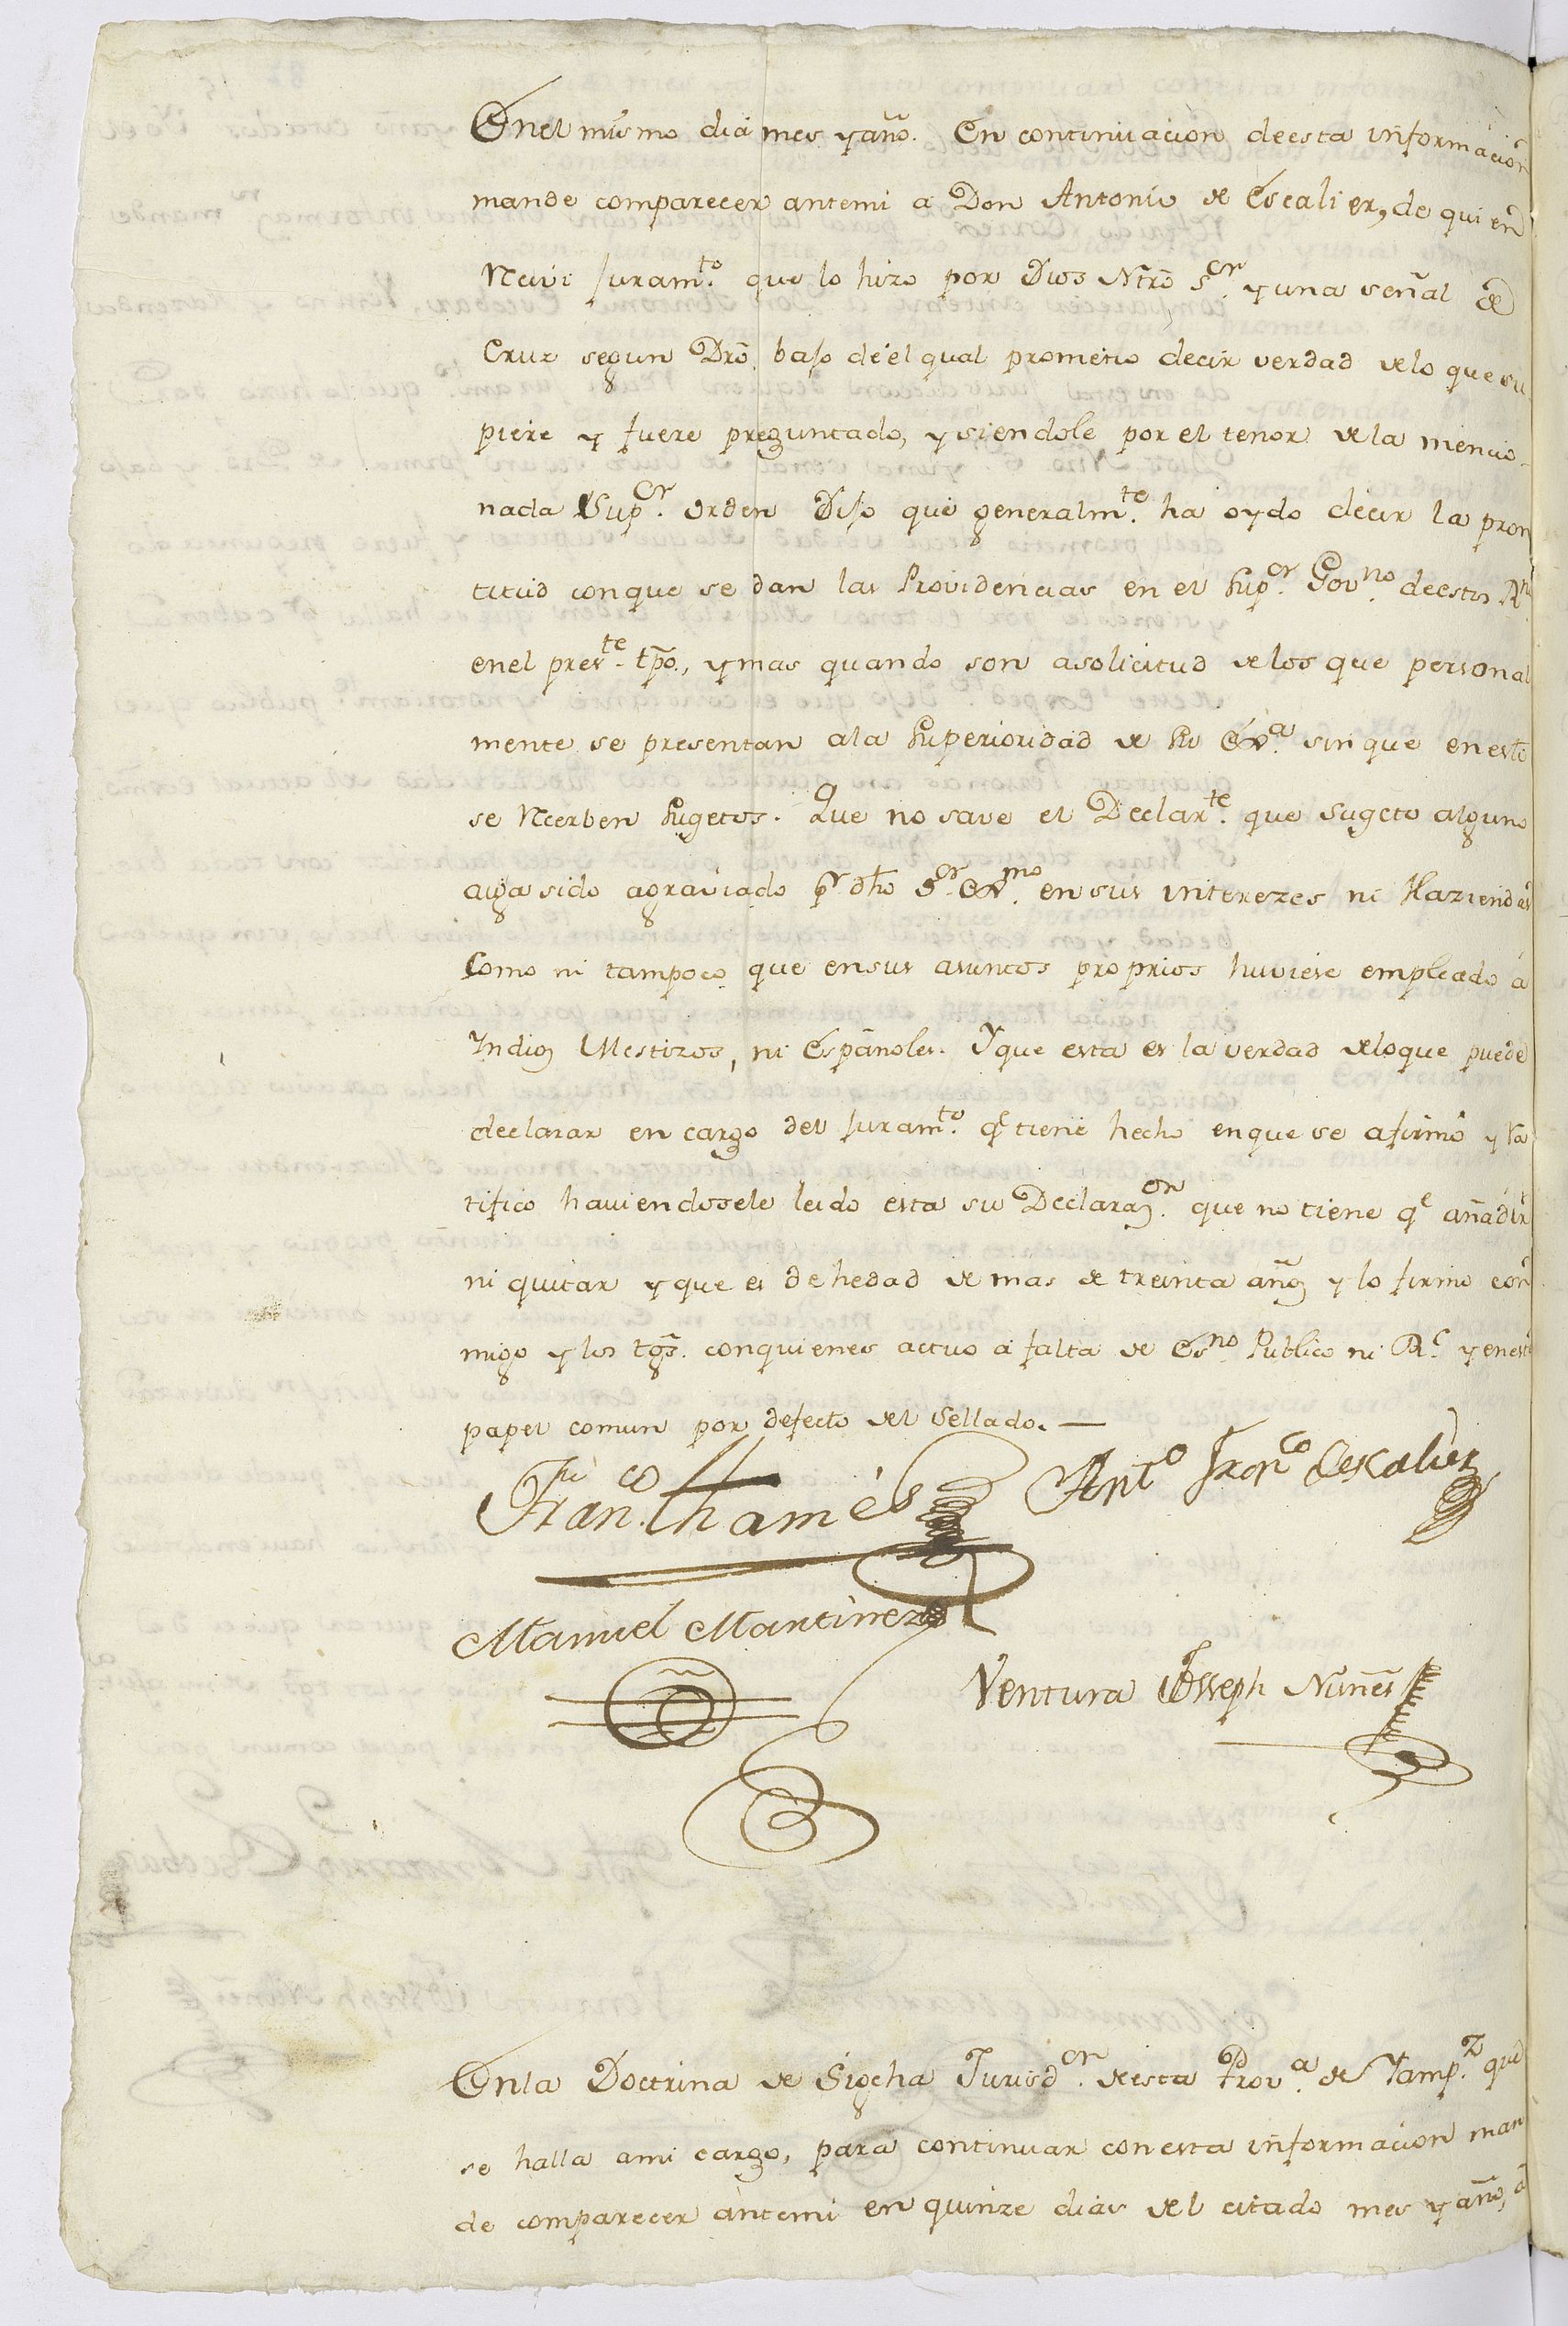 Enel mismo dia mes y año. En continuacion deesta informacion
mande comparecer antemi a Don Antonio de Escalier, de quien
Recivi juram.to que lo hizo por Dios Ntrõ S.or y una señal de
Cruz segun Drõ, bajo de el qual prometio decir verdad delo que su
piere y fuere preguntado, y siendole por el tenor dela mencio-
nada Sup.or orden Dijo que generalm.te ha oydo decir la pron
titud conque se dan las Providencias en el Sup.or Gov.no deestos Rn.s
enel pres.te tpõ., y mas quando son asolicitud delos que personal
mente se presentan ala Superioridad de Su Ex.a sin que en esto
se Recerben Sugetos. Que no save el Declar.te que sugeto alguno
aiga sido agraviado p.r dho S.or Ex.mo en sus interezes ni Haziendas
Como ni tampoco que ensus asuntos proprios huviese empleado á
Indios Mestizos, ni Españoles. Y que esta es la verdad delo que puede
declarar en cargo del juram.to q.e tiene hecho enque se afirmó y Ra
tifico haviendosele leido esta su Declaraz.on que no tiene q.e añadir
ni quitar y que es de hedad de mas de treinta años y lo firmo con
migo y los tgs̃. conquienes actuo a falta de Es.no Publico ni R.l y en este
papel comun por defecto del Sellado.—
Fran.co Thames Ant.o Fran.co Escalier
Manuel Martinez
Ventura Joseph Nuñes
Enla Doctrina de Sigcha Jurisd.on deesta Prov.a de Tamp.z que
se halla ami cargo, para continuar con esta informacion man
de comparecer antemi en quinze dias del citado mes y año, á